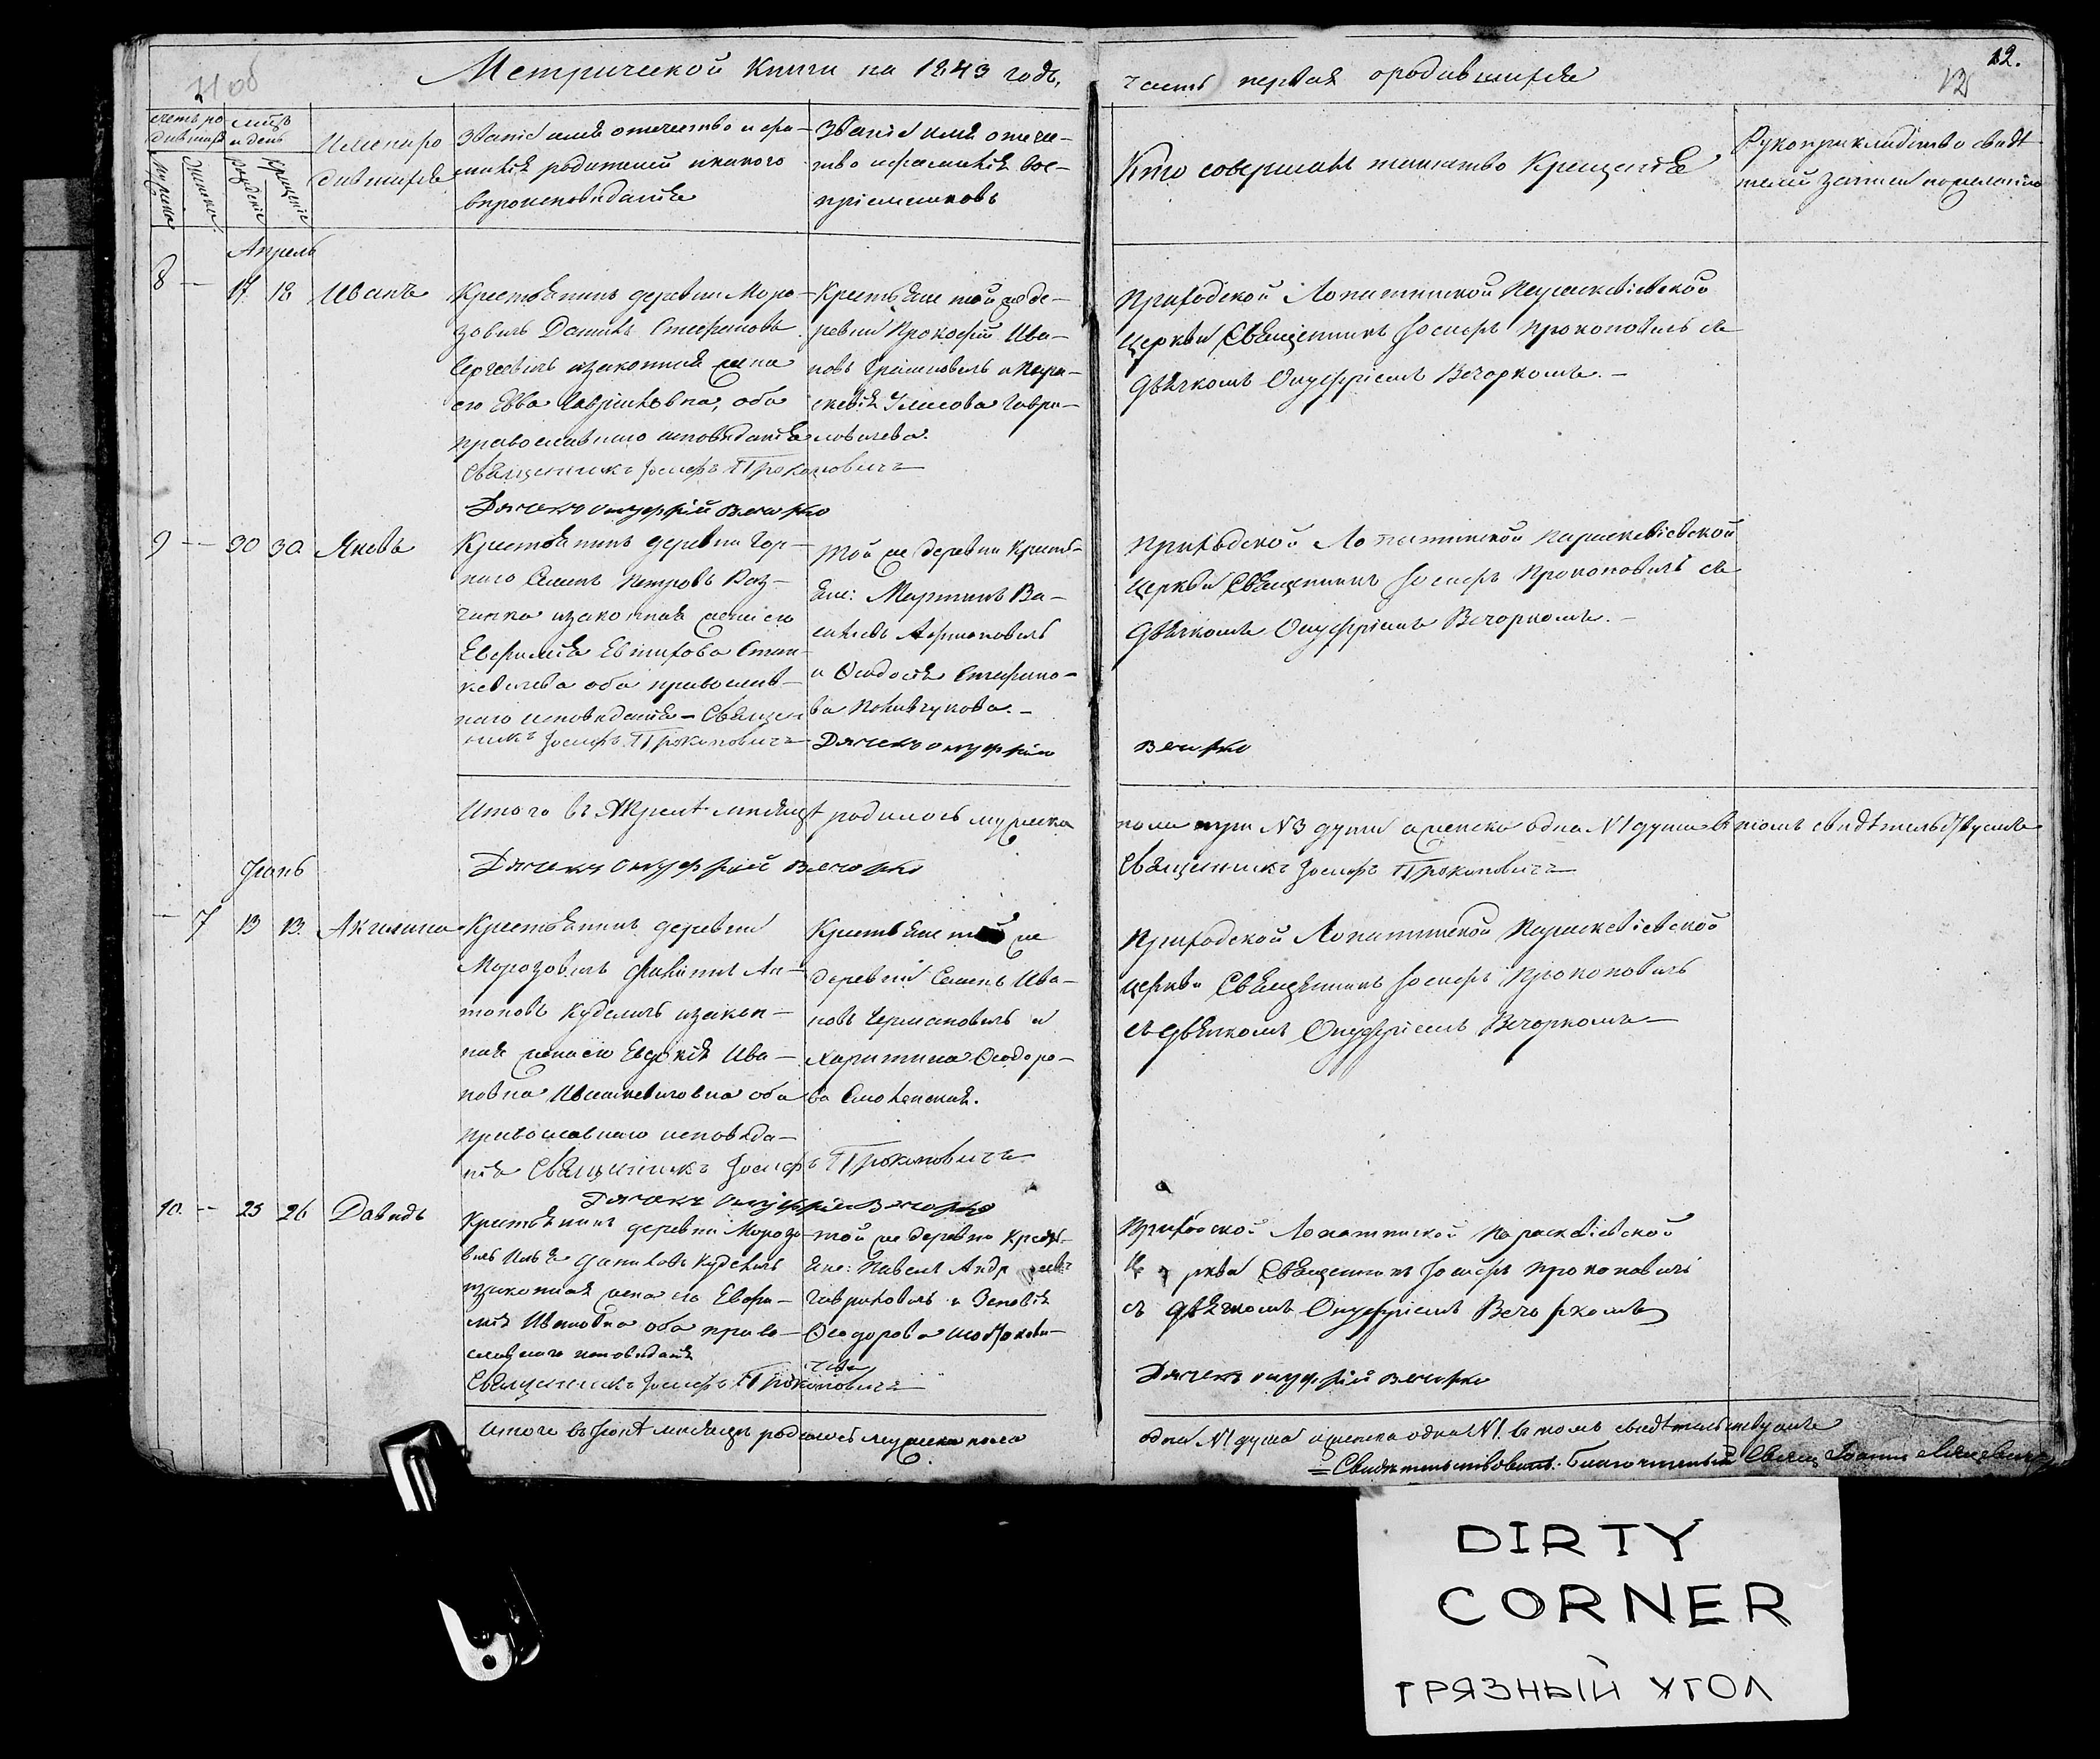 11 об
Метрической Книги на 1843 годъ,
часть первая о родившихся
12.
12
счетъ ро
дившихся
мѣсяцъ
и день
Мужеска
Женска
рожденіе
крещеніе
Имена ро
дившихся
Званіе имя отечество и фа-
милія родителей и какого
вѣроисповеданія
Званіе имя отече-
тво и фамилія вос-
пріемниковъ
Кто совершалъ таинство Крещенія
Рукоприкладство свидѣ
телей записи по желанію
Апрель
8 — 17. 18 Иванъ
Крестьянинъ деревни Моро-
зовичь Данилъ Стефановъ
Сергеевичь и законная жена
его Евва Гавриловна, оба
православнаго исповеданія
Священникъ Іосифъ Прокоповичъ
Дячекъ Онуфрій Вечорко
Крестьяне той же де-
ревни Прокофій Ива-
новъ и Пара-
скевія Гаври-
ловичева.
Приходской Лопатинской Параскевіевской
Церкви Священникъ Іосифъ Прокоповичь съ
дьячкомъ Онуфріемъ Вечоркомъ. —
9 — 30 30 Яковъ
Крестьянинъ деревни Гор-
наго Семенъ Петровъ
и законная жена его
Евфимія Стан-
кевичева оба православ-
наго исповеданія — Священ
никъ Іосифъ Прокоповичъ
Той же деревни Кресть-
яне: Мартинъ Ва-
сильевъ
и Феодосія Стефано-
ва —
Дячекъ Онуфрій
Вечорко
Приходской Лопатинской Параскевіевской
Церкви Священникъ Іосифъ Прокоповичь съ
дьячкомъ Онуфріемъ Вечоркомъ. —
Итого въ Апрелѣ месяцѣ родилось мужеска
пола три N 3 души а женска одна N 1 душа въ томъ свидѣтельствуемъ
Дячекъ Онуфрій Вечорко
Священникъ Іосифъ Прокоповичъ
Іюнь
— 7 13 13. Акилина
Крестьянинъ деревни
Морозовичь Филипъ Ан-
тоновъ Куделичь и закон-
ная жена его Евдокія Ива-
новна оба
православнаго исповеда-
нія Священникъ Іосифъ Прокоповичъ
Дячекъ Онуфрій Вечорко
Крестьяне той же
деревни Семенъ Ива-
новъ и
Харитина Феодоро-
ва
Приходской Лопатинской Параскевіевской
Церкви Священникъ Іосифъ Прокоповичь
съ дьячкомъ Онуфріемъ Вечоркомъ —
10. — 25 26 Давидъ
Крестьянинъ деревни Морозо-
вичь Илья Даниловъ Куделичь
и законная жена его Евфи-
мія Ивановна оба право-
славнаго исповеданія
Священникъ Іосифъ Прокоповичъ
той же деревни Кресть-
яне: Павелъ
Гавриловичь и Зеновія
Феодорова
чева
Приходской Лопатинской Параскевіевской
Церкви Священникъ Іосифъ Прокоповичь
съ дьячкомъ Онуфріемъ Вечоркомъ
Дячекъ Онуфрій Вечорко
Итого въ Іюнѣ месяцѣ родилось мужеска пола
одна N 1 душа а женска одна N 1. въ томъ свидѣтельствуемъ
= Свидѣтельствовалъ: Благочинный Священ Іоаннъ
DIRTY
CORNER
ГРЯЗНЫЙ УГОЛ